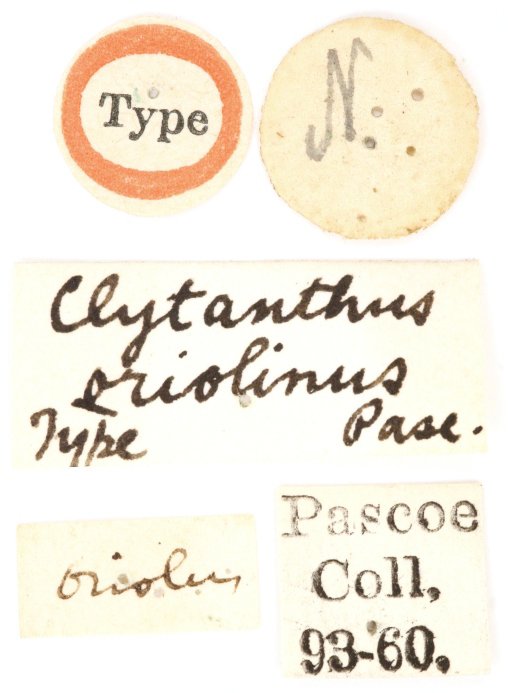 Type
N.
Clytanthus
oriolinus
Type Pasc.
oriolus
Pascoe
Coll,
93-60.